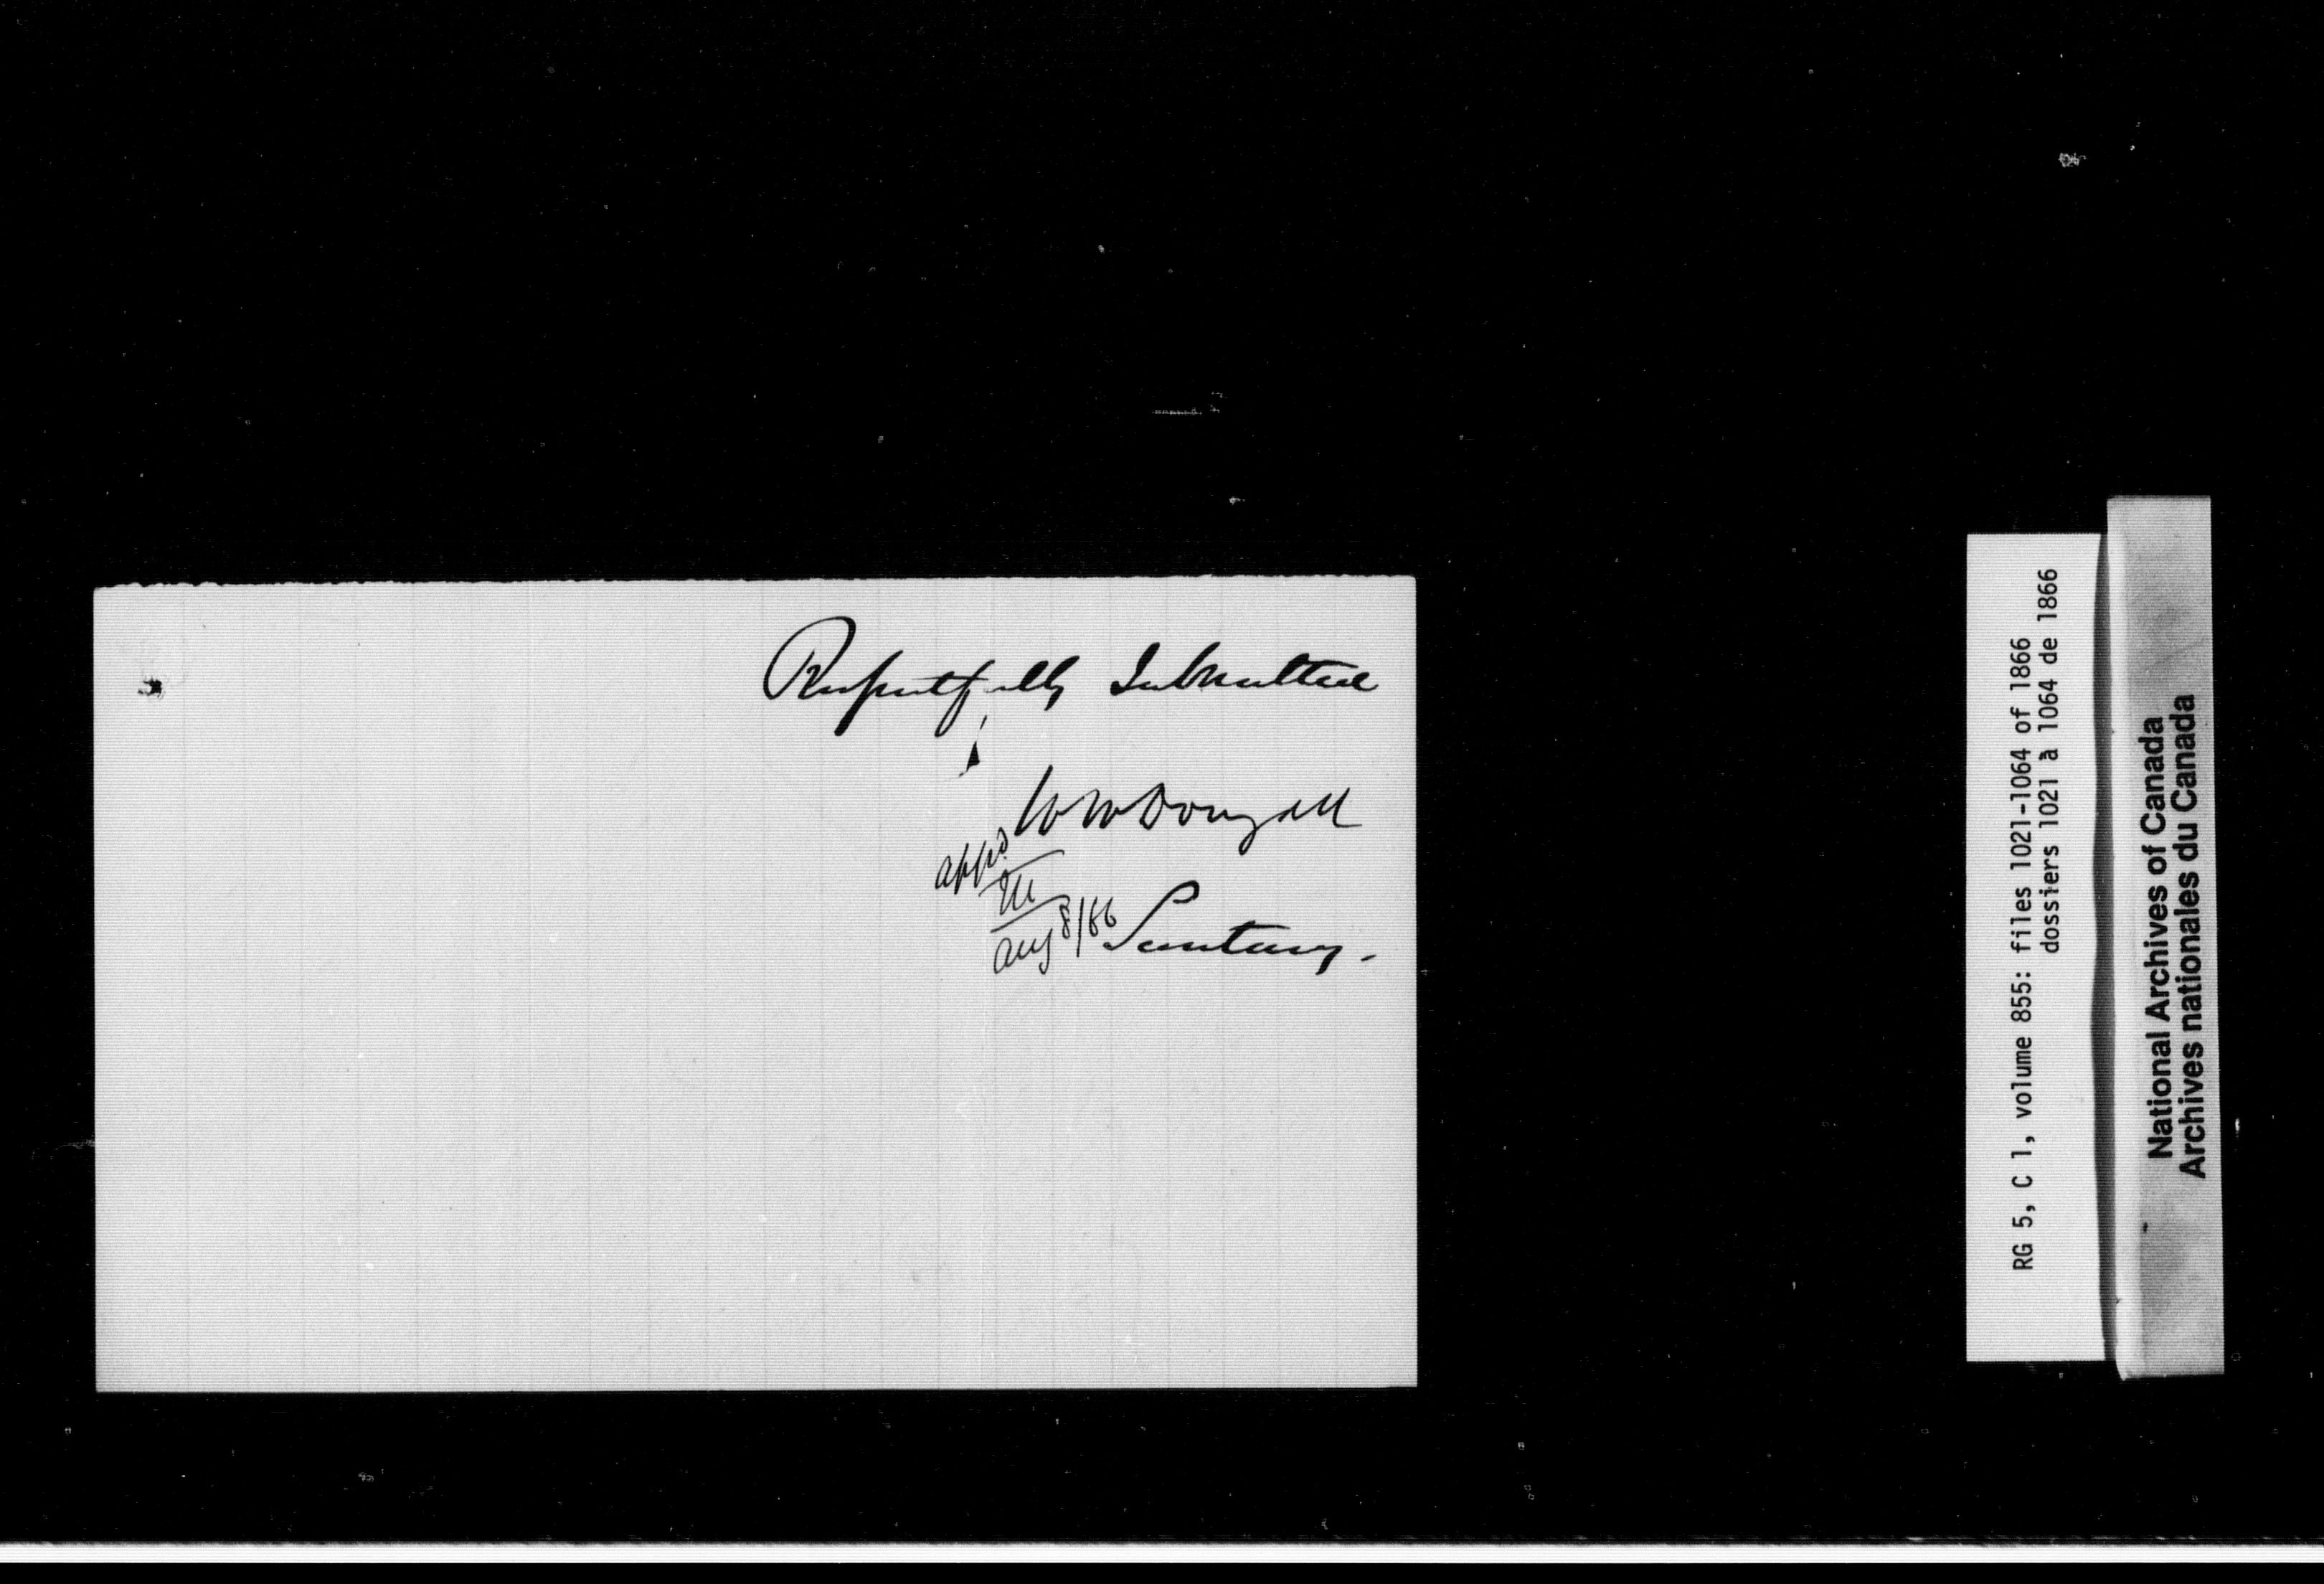 Respectfully Submitted
W McDougall
appd.
M
Aug 8/66
Secretary.
RG 5, C 1, volume 855: files 1021-1064 of 1866
dossiers 1021 à 1064 de 1866
National Archives of Canada
Archives nationales du Canada